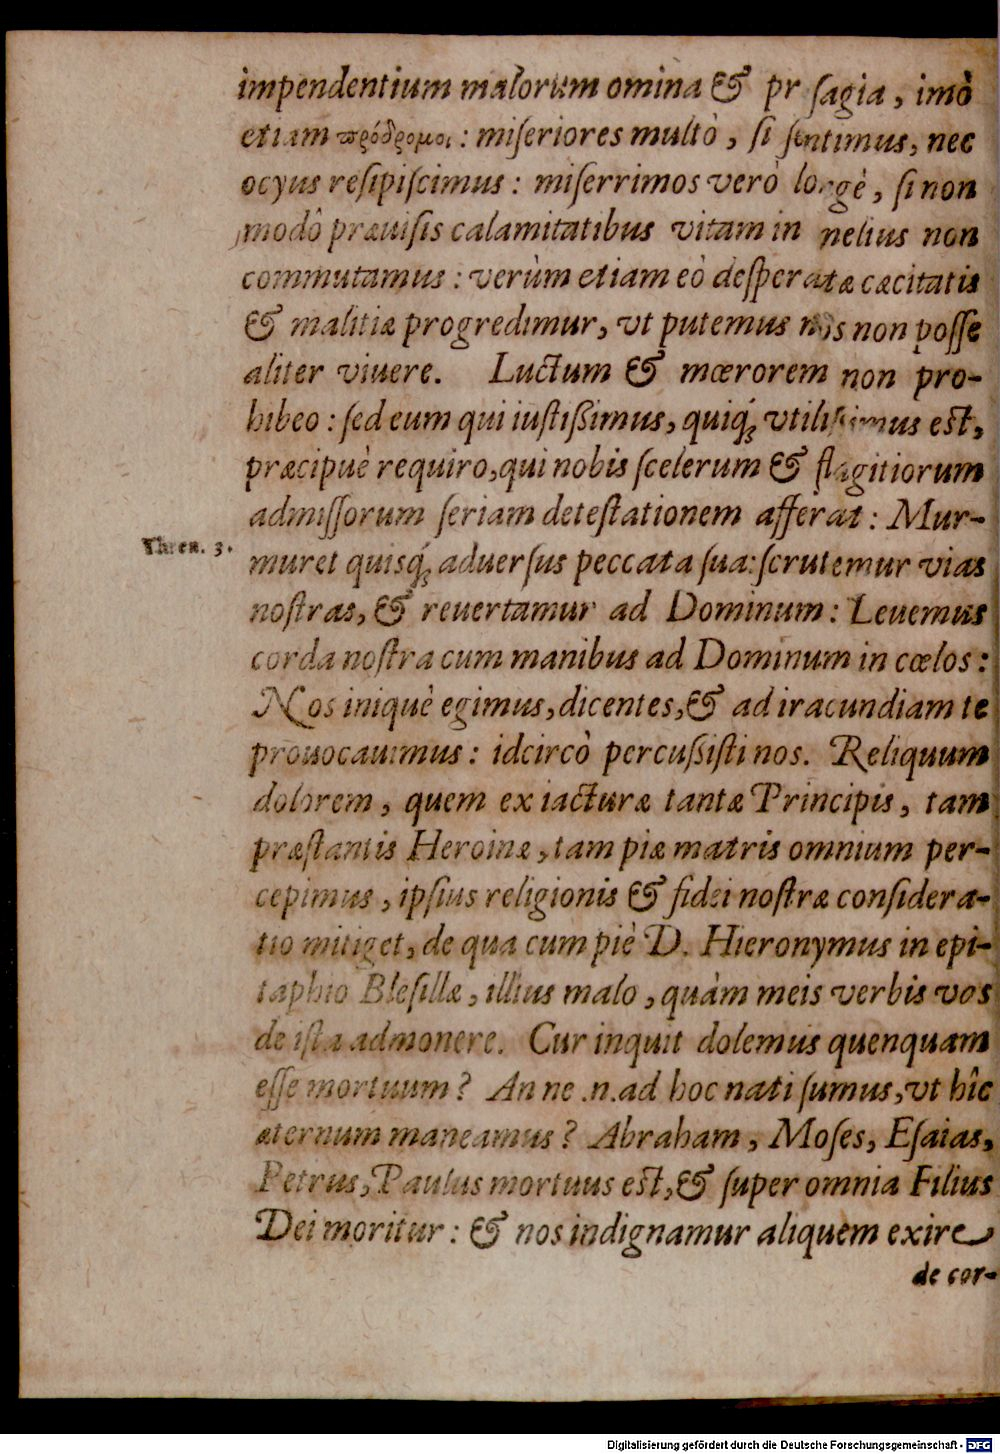 impendentium malorum omina & pr sagia, imò
etiam πρόδρομοι: miſeriores multò, ſi ſentimus, nec
ocyus reſipiſcimus: miſerrimos verò longè, ſi non
modô præuiſis calamitatibus vitam in melius non
commutamus: verùm etiam eò deſperatæ cæcitatis
& malitiæ progredimur, vt putemus nos non poſſe
aliter viuere. Luctum & mœrorem non pro-
hibeo: ſed eum qui iuſtißimus, quiq́; vtilißimus eſt,
præcipuè requiro, qui nobis ſcelerum & flagitiorum
admiſſorum ſeriam deteſtationem afferat: Mur-
Thren. 3.
muret quisq́; aduerſus peccata ſua: ſcrutemur vias
noſtras, & reuertamur ad Dominum: Leuemus
corda noſtra cum manibus ad Dominum in cœlos:
Nos iniquè egimus, dicentes, & ad iracundiam te
prouocauimus: idcircò percußiſti nos. Reliquum
dolorem, quem ex iacturæ tantæ Principis, tam
præſtantis Heroinæ, tam piæ matris omnium per-
cepimus, ipſius religionis & fidei noſtræ conſidera-
tio mitiget, de qua cum piè D. Hieronymus in epi-
taphio Bleſillæ, illius malo, quàm meis verbis vos
de iſta admonere. Cur inquit dolemus quenquam
eſſe mortuum? An ne .n. ad hoc nati ſumus, vt hîc
æternum maneamus? Abraham, Moſes, Eſaias,
Petrus, Paulus mortuus eſt, & ſuper omnia Filius
Dei moritur: & nos indignamur aliquem exire
de cor-
Digitalisierung gefördert durch die Deutsche Forschungsgemeinschaft - DFG